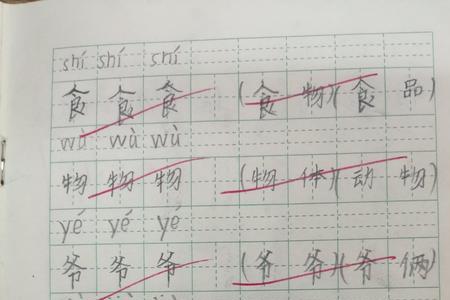 shí shí shí
食 食 食 (食物)(食品)
wù wù wù
物 物 物 (物体)(动物)
yé yé yé
爷 爷 爷 (爷爷)(爷俩)